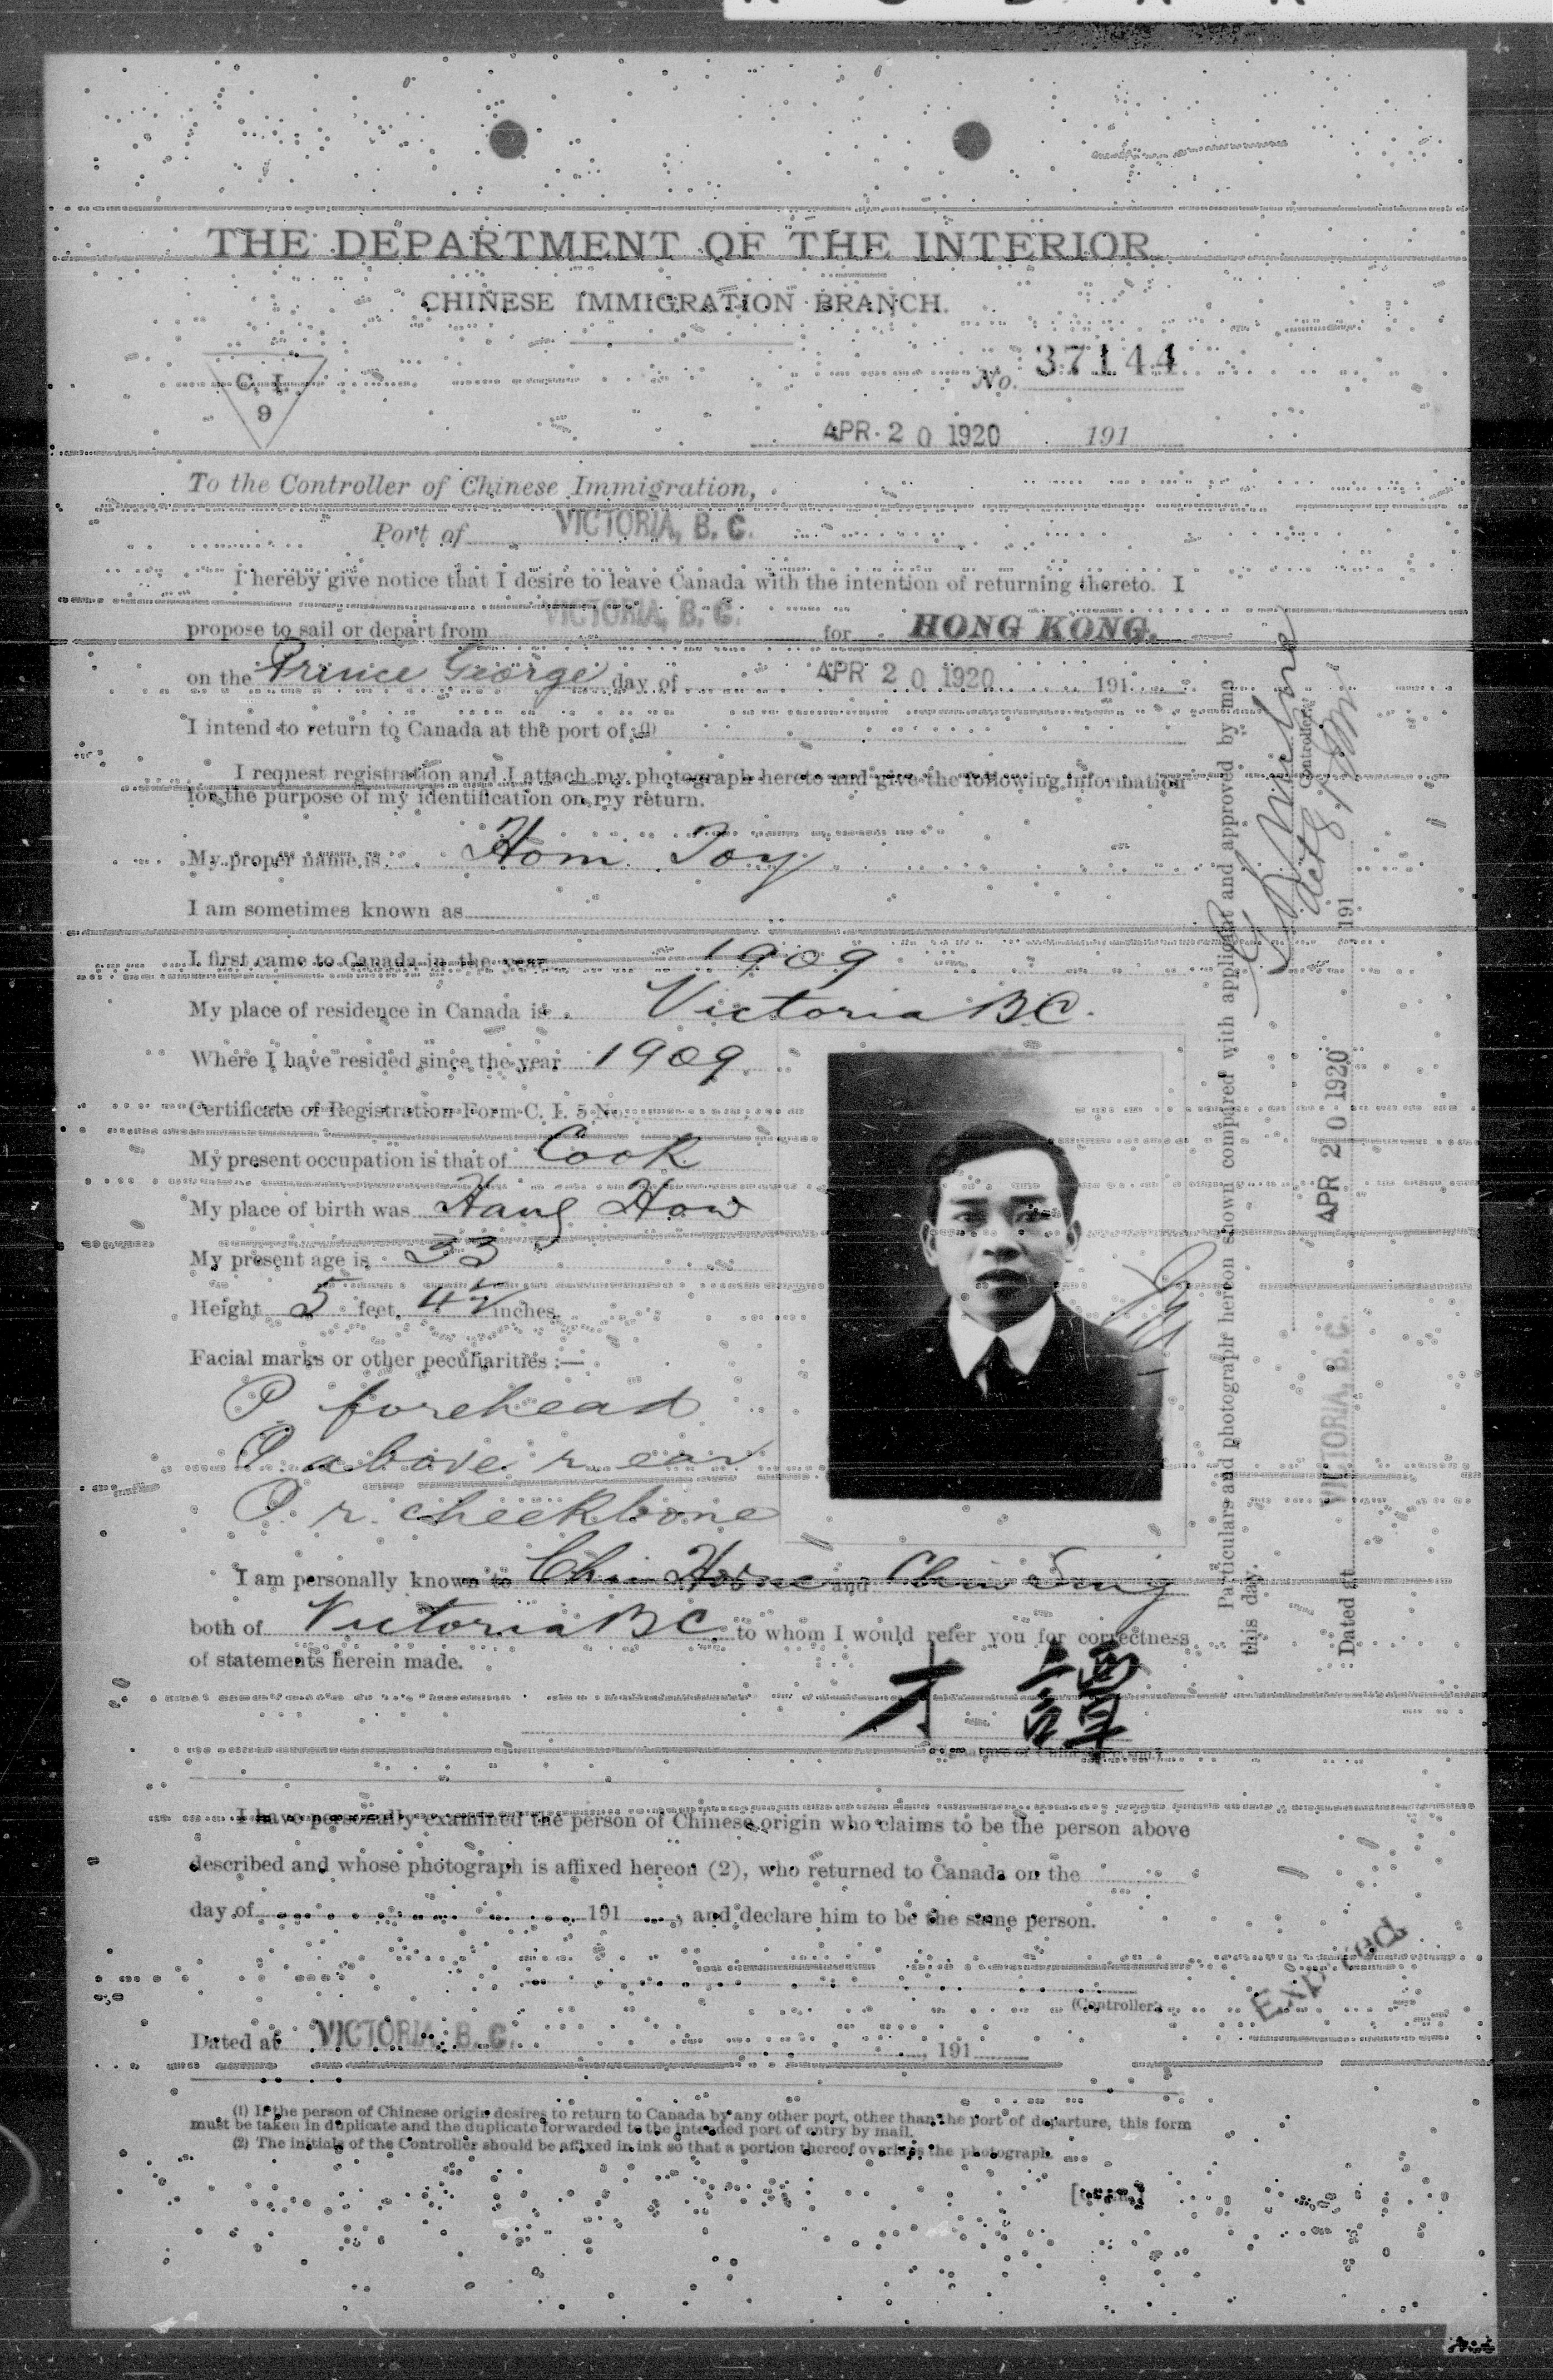 THE DEPARTMENT OF THE INTERIOR
CHINESE IMMIGRATION BRANCH.
C. I.
9
No. 37144
APR 20 1920 191
To the Controller of Chinese Immigration,
Port of VICTORIA, B. C.
I hereby give notice that I desire to leave Canada with the intention of returning thereto. I
propose to sail or depart from VICTORIA, B. C. for HONG KONG.
on the Prince George day of APR 20 1920 191
I intend to return to Canada at the port of (1)
I request registration and I attach my photograph hereto and give the following information
for the purpose of my identification on my return.
My proper name is Hom Toy
I am sometimes known as
I first came to Canada in the year 1909
My place of residence in Canada is Victoria BC.
Where I have resided since the year 1909
Certificate of Registration Form C. I. 5 No.
My present occupation is that of Cook
My place of birth was Hang How
My present age is 33
Height 5 feet, 4 1/2 inches.
Facial marks or other peculiarities :—
P. forehead
P. above r. ear
P. r. cheekbone
I am personally known to and
both of Victoria BC to whom I would refer you for correctness
of statements herein made.
才 譚
I have personally examined the person of Chinese origin who claims to be the person above
described and whose photograph is affixed hereon (2), who returned to Canada on the
day of 191 , and declare him to be the same person.
(Controller)
Dated at VICTORIA, B. C. , 191
(1) If the person of Chinese origin desires to return to Canada by any other port, other than the port of departure, this form
must be taken in duplicate and the duplicate forwarded to the intended port of entry by mail.
(2) The initials of the Controller should be affixed in ink so that a portion thereof overlaps the photograph.
Particulars and photograph hereon shown compared with applicant and approved by me
this day.
Controller.
Dated at VICTORIA, B. C. APR 20 1920 191
Expired